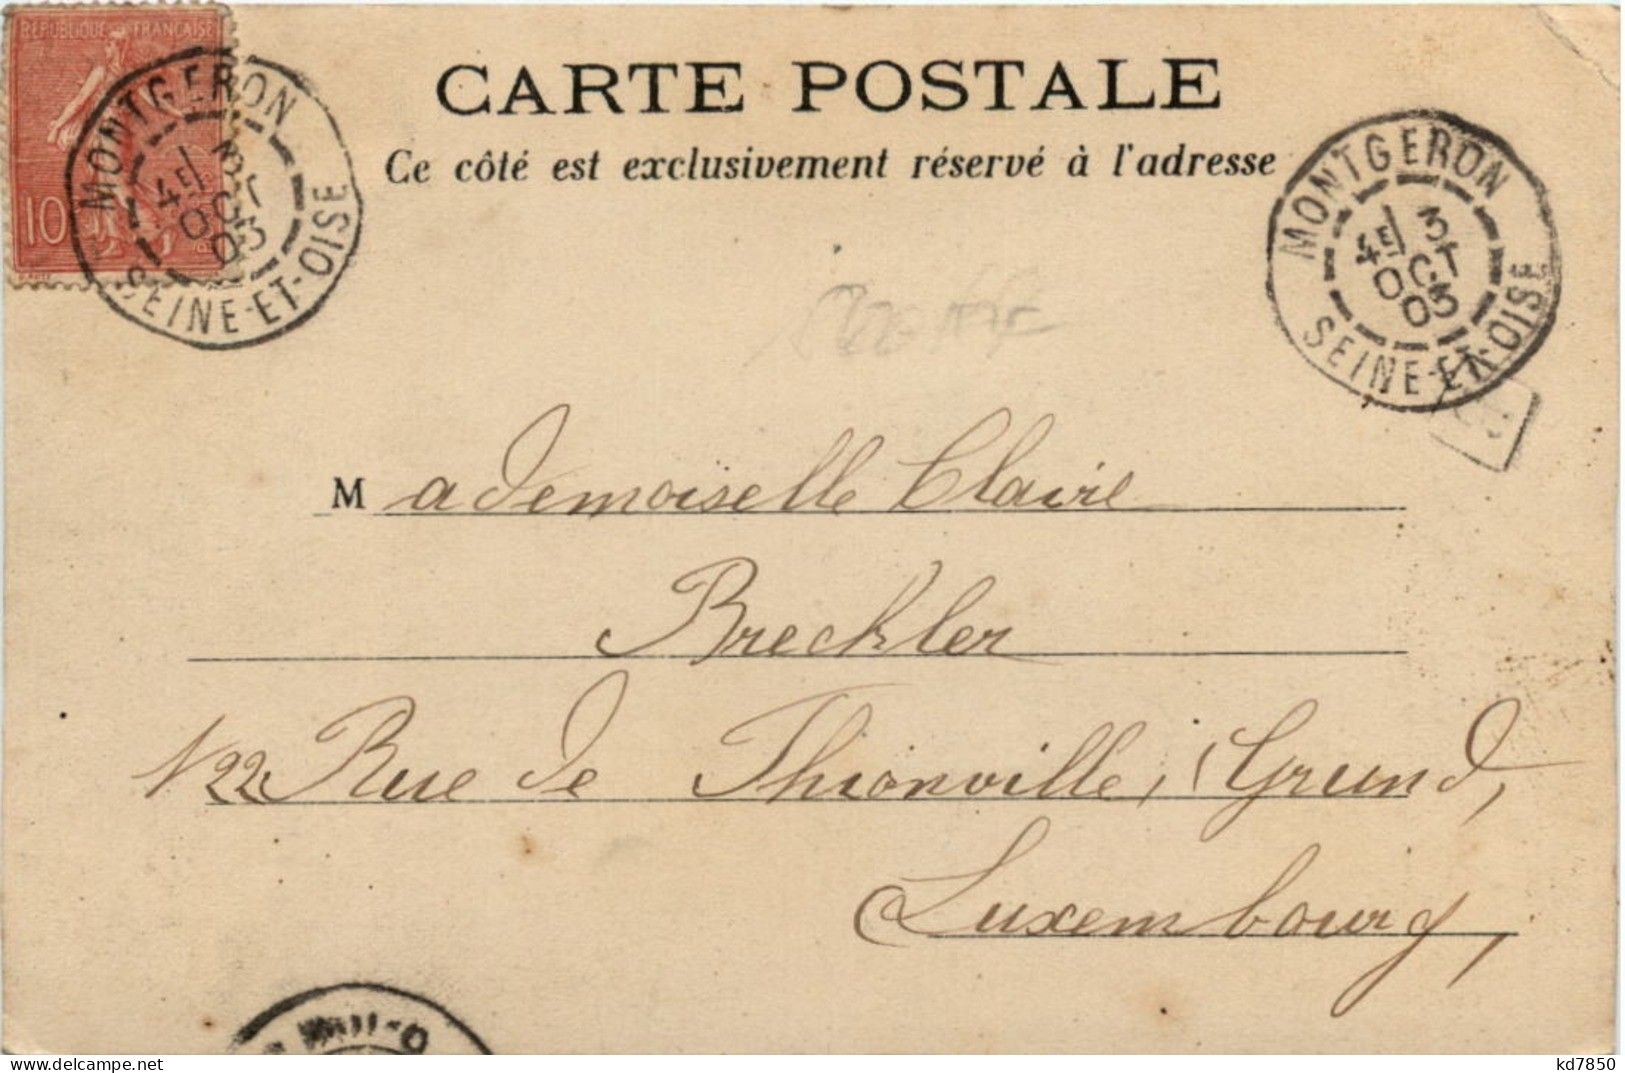 REPUBLIQUE FRANCAISE
10
MONTGERON
4E 3
OCT
05
SEINE-ET-OISE
CARTE POSTALE
Ce côté est exclusivement réservé à l'adresse
MONTGERON
4E 3
OCT
05
SEINE-ET-OISE
Mademoiselle Claire
Breckler
122 Rue de Thionville, Grund,
Luxembourg,
delcampe.net
kd7850